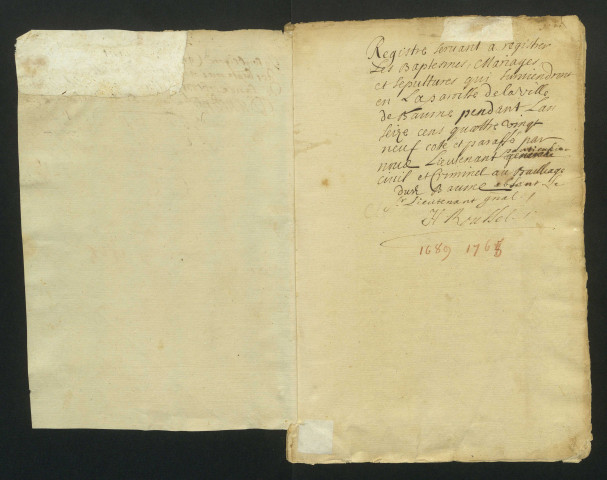 Registre servant a registrer
Les Baptesmes, Mariages
et sepultures qui surviendront
en La parr. de la ville
de pendant Lan
seize cens quattre vingt
neuf coté et paraffé par
nous Lieutenant particulier
civil et Criminel au Bailliage
dud. absant Le
Sr. Lieutenant gnal
1689 176